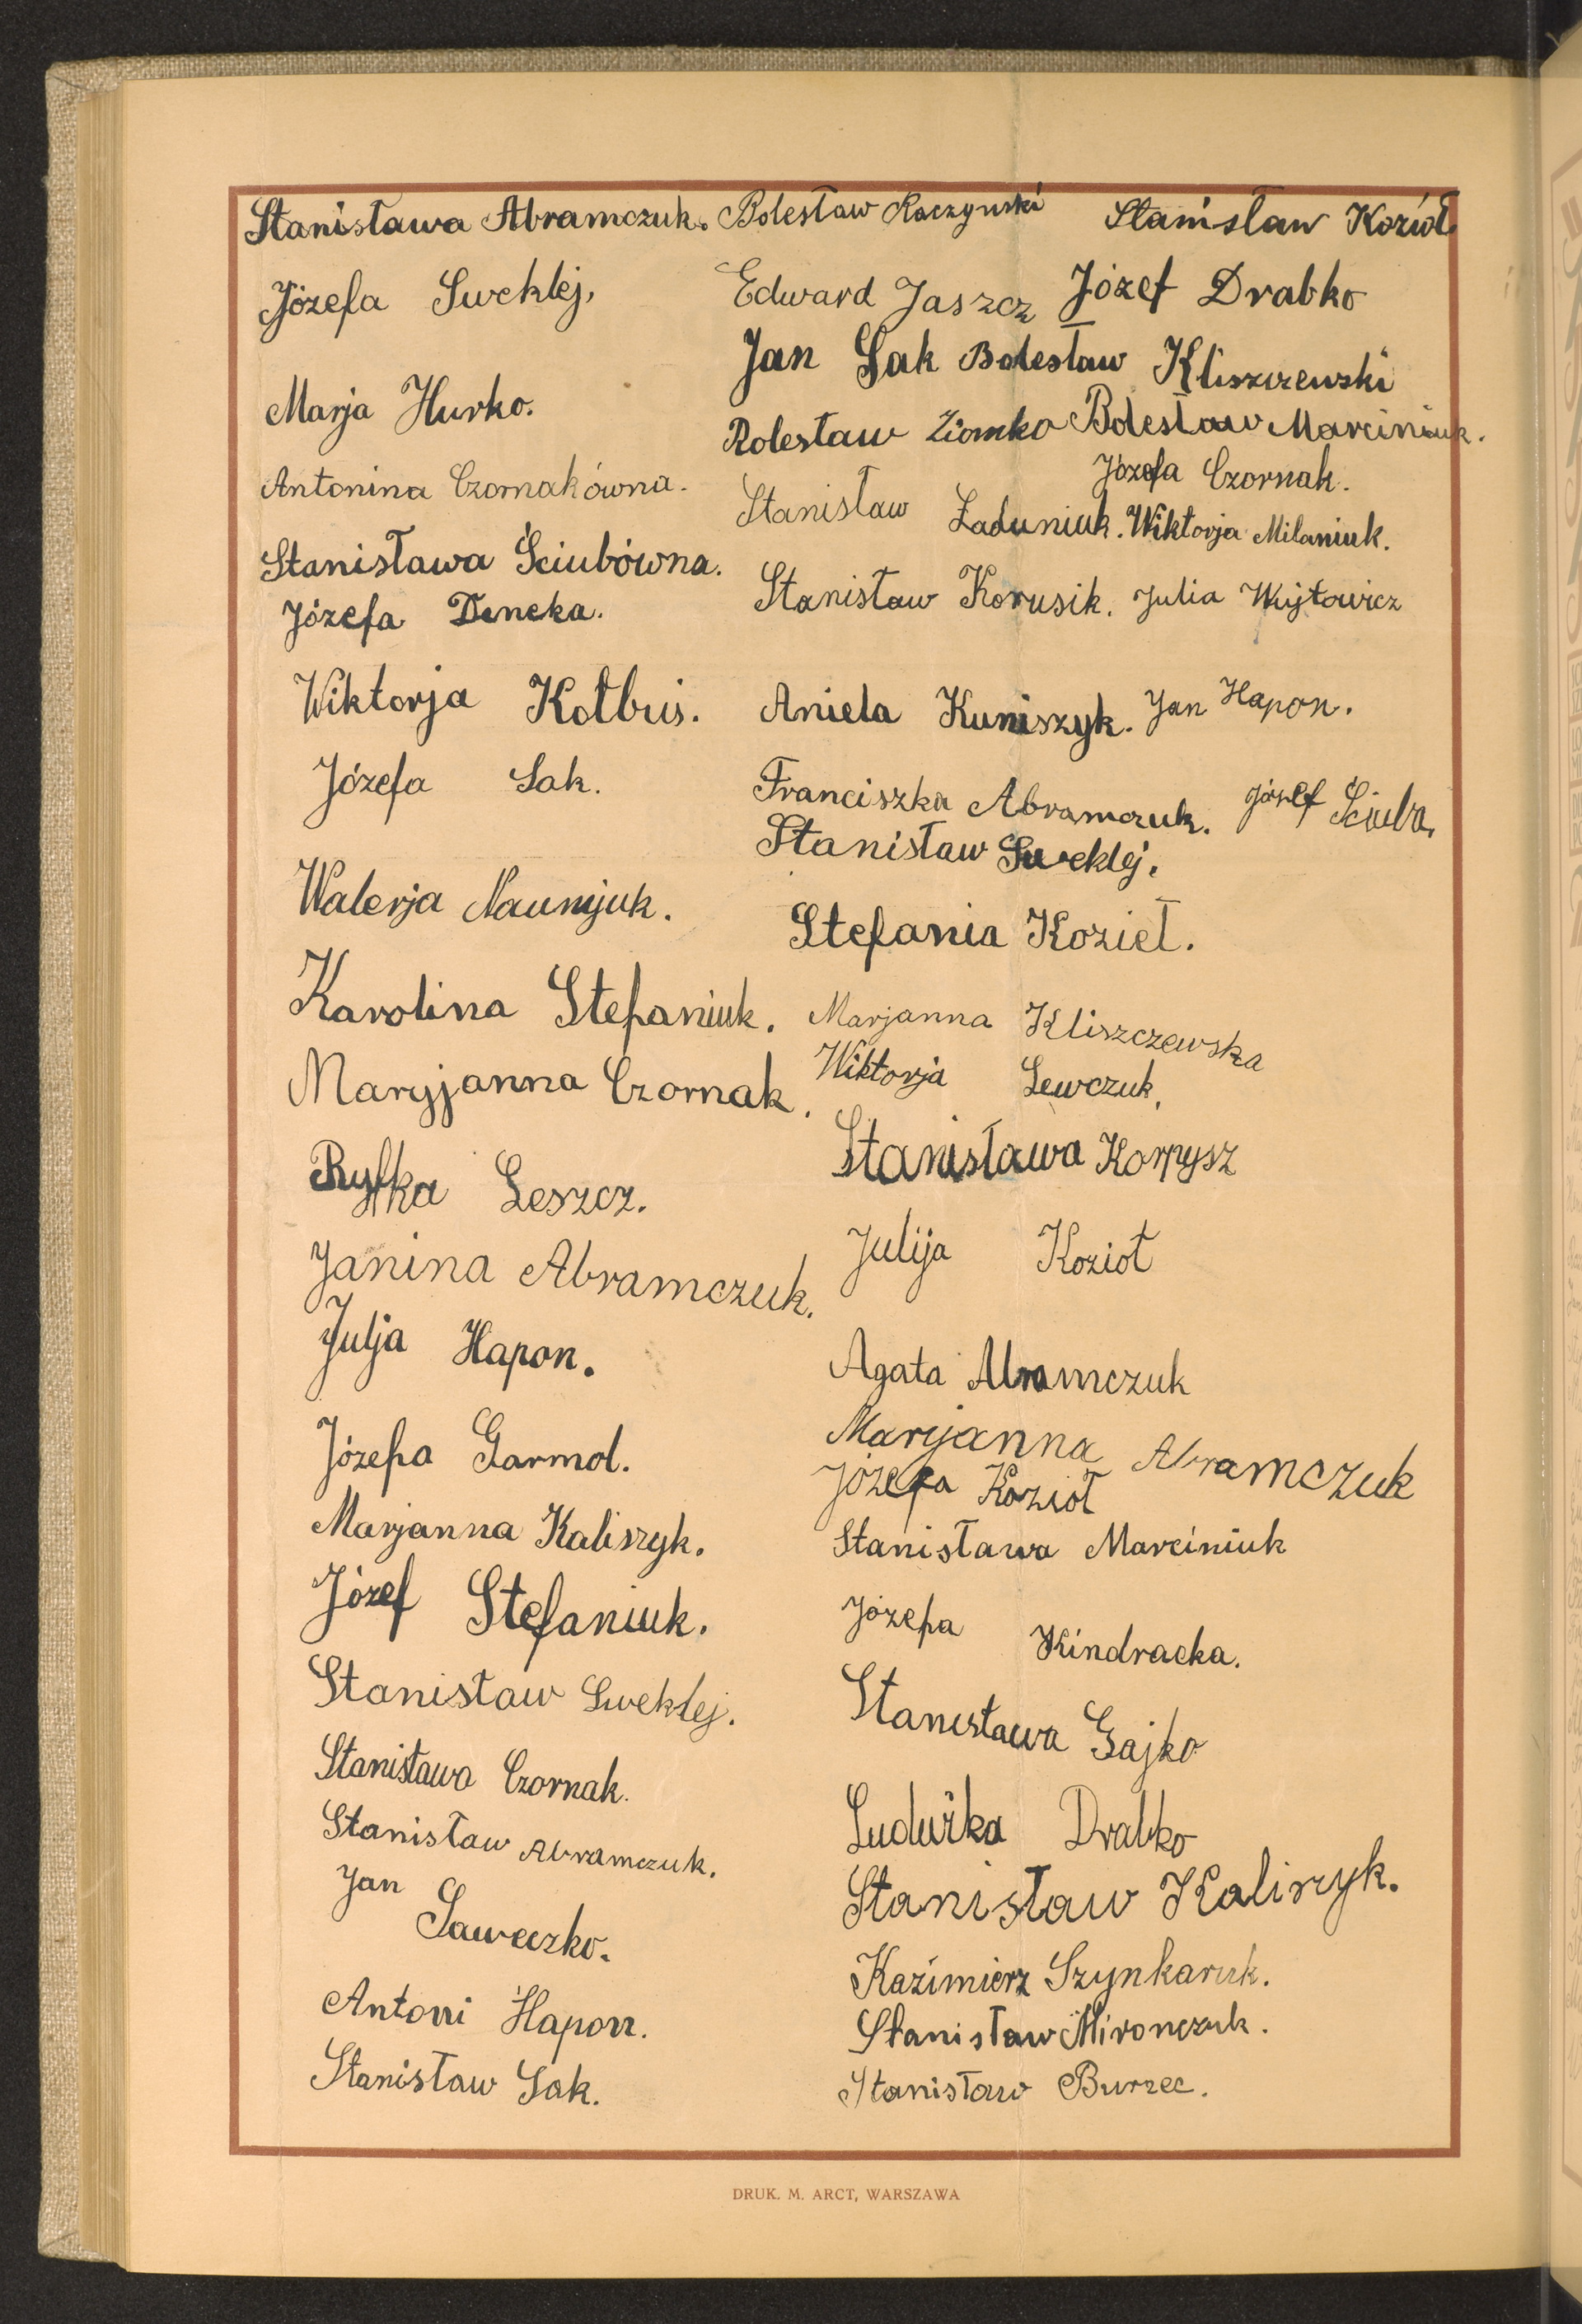 Stanisława Abramczuk. Bolesław Raczynski Stanisław Kozioł.
Józefa Sweklej,
Edward Jaszcz Józef Drabko
Jan Sak Bolesław Kliszczewski
Marja Hurko.
Bolesław Ziomko Bolesław Marciniuk.
Józefa Czornak.
Antonina Czornakówna.
Stanisław Ładuniuk. Wiktorja Milaniuk.
Stanisława Ściubówna.
Stanisław Korusik. Julia Wujtowicz
Józefa Deneka.
Wiktorja Kołbus. Aniela Kuniszyk. Jan Hapon.
Józefa Sak.
Franciszka Abramczuk. Józef Ściuba.
Stanisław Sweklej.
Walerja Naumjuk.
Stefania Kozieł.
Karolina Stefaniuk. Marjanna Kliszczewska
Maryjanna Czornak. Wiktorja Lewczuk,
Stanisława Korpysz
Ryfka Leszcz.
Julija Kozioł
Janina Abramczuk.
Julja Hapon.
Agata Abramczuk
Józefa Garmol.
Maryjanna Abramczuk
Józefa Kozioł
Marjanna Kaliszyk.
Stanisława Marciniuk
Józef Stefaniuk.
Józefa Kindracka.
Stanisław Sweklej.
Stanisława Gajko
Stanisława Czornak.
Ludwika Drabko
Stanisław Abramczuk.
Stanisław Kaliszyk.
Jan Saweczko.
Kazimierz Szynkaruk.
Antoni Hapon.
Stanisław Mironczuk.
Stanisław Sak.
Stanisław Burzec.
DRUK. M. ARCT, WARSZAWA